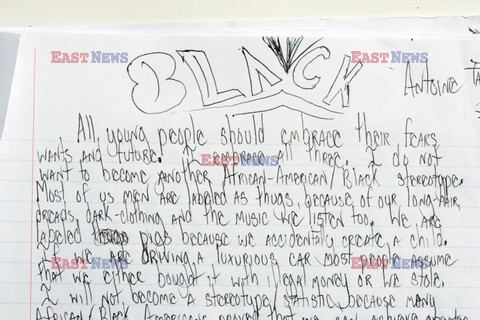 BLACK
Antoine
All young people should embrace their fears,
wants and future. I embrace all three. I do not
want to become another African-American/Black stereotype.
Most of us men are labeled as thugs, because of our long-hair,
dreads, dark-clothing and the music we listen too. We are
labeled pigs because we accidentally create a child.
If we are driving a luxurious car most people assume
that we either bought it with illegal money or we stole.
I will not, become a stereotype/statistic because many
African/Black Americans proved that we can
EASTNEWS
EASTNEWS
EASTNEWS
EASTNEWS
EASTNEWS
EASTNEWS